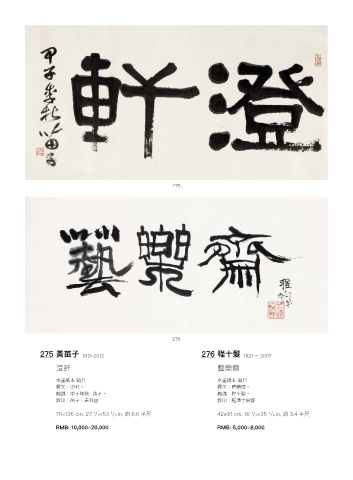 澄軒
甲子季秋 苗子
275
藝樂齋
程十髮
276
275 黃苗子 1913-2012
澄軒
水墨紙本 鏡片
釋文：澄軒。
款識：甲子年秋，苗子。
70×136 cm. 27 1/2×53 1/2 in. 約 8.6 平尺
RMB: 10,000-20,000
276 程十髮 1921-2007
藝樂齋
水墨紙本 鏡片
釋文：藝樂齋。
款識：程十髮。
42×91 cm. 16 1/2×35 7/8 in. 約 3.4 平尺
RMB: 5,000-8,000